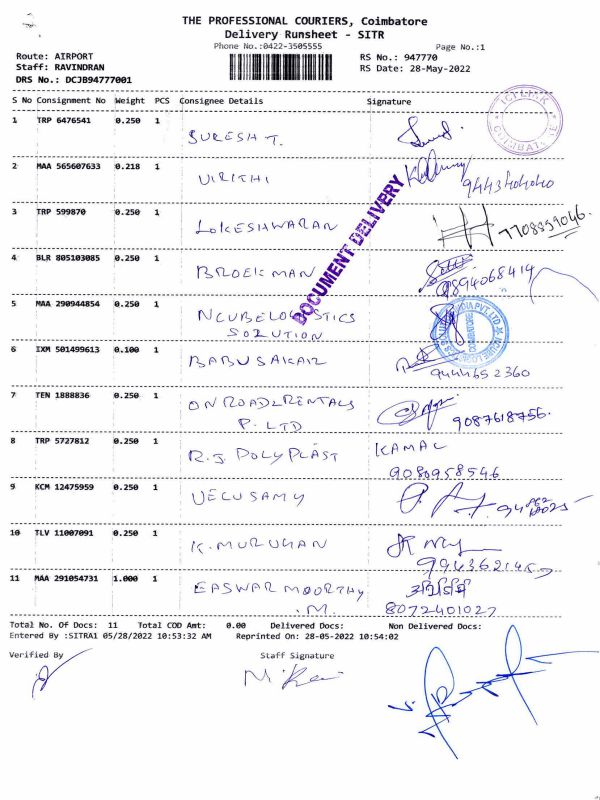 THE PROFESSIONAL COURIERS, Coimbatore
Delivery Runsheet - SITR
Phone No.:0422-3505555
Page No.:1
Route: AIRPORT
RS No.: 947770
Staff: RAVINDRAN
RS Date: 28-May-2022
DRS No.: DCJB94777001
S No Consignment No Weight PCS Consignee Details Signature
1 TRP 6476541 0.250 1 SURESH T.
2 MAA 565607633 0.218 1 VIRITHI
3 TRP 599870 0.250 1 LOKESHWARAN 7708859046.
4 BLR 805103085 0.250 1 BROEKMAN 9894068414
5 MAA 290944854 0.250 1 NCUBELOGISTICS
SOLUTION
6 IXM 501499613 0.100 1 9444652360
7 TEN 1888836 0.250 1 ONROADZRENTALS
P. LTD 9087618756.
8 TRP 5727812 0.250 1 R.J. POLYPLAST KAMAL
9080958546
9 KCM 12475959 0.250 1 VELUSAMY
10 TLV 11007091 0.250 1 K. MURUGAN
11 MAA 291054731 1.000 1 EASWARMOORTHY
.M. 8072401027
DOCUMENT DELIVERY
COIMBATORE
Total No. Of Docs: 11 Total COD Amt: 0.00 Delivered Docs: Non Delivered Docs:
Entered By :SITRA1 05/28/2022 10:53:32 AM Reprinted On: 28-05-2022 10:54:02
Verified By
Staff Signature